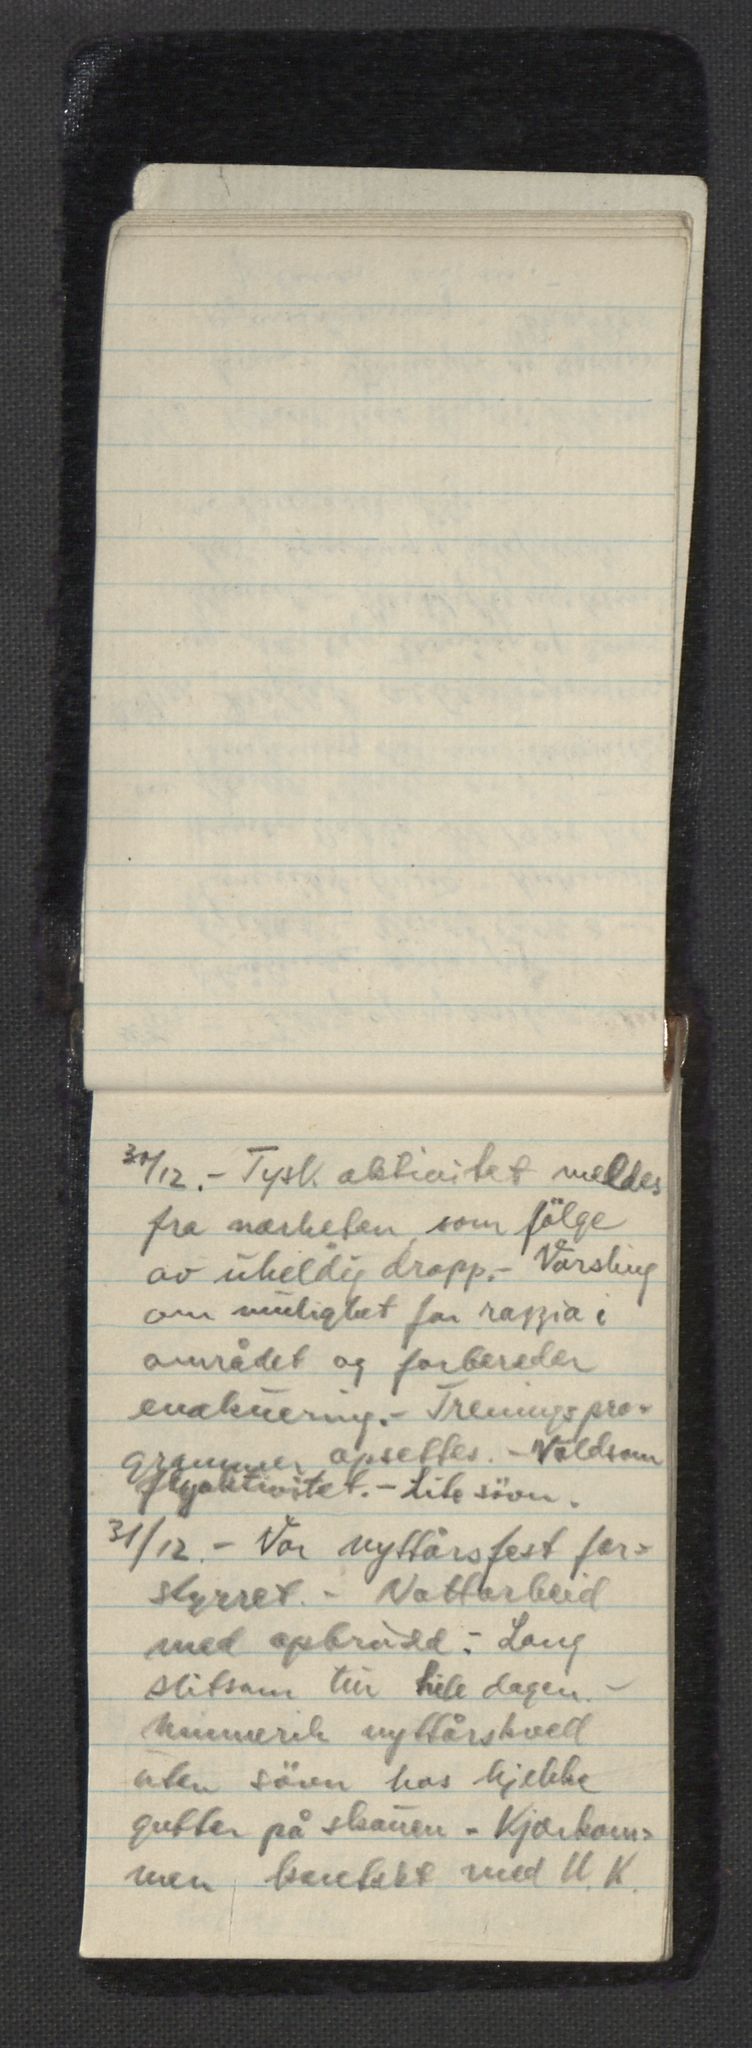 30/12.- Tysk aktivitet meldes
fra nærheten som følge
av uheldig dropp.- Varsling
om mulighet for razzia i
området og forbereder
evakuering.- Treningspro-
grammer opsettes.- Voldsom
flyaktivitet.- Lite søvn.
31/12.- Vor nyttårsfest for-
styrret.- Nattarbeid
med opbrudd.- Lang
slitsom tur hele dagen.-
nyttårskveld
uten søvn hos kjekke
gutter på skauen - Kjærkom-
men kontakt med U.K.